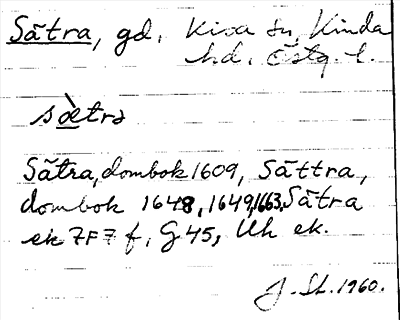 Sätra, gd, Kisa sn, Kinda
hd. Östg. l.
sæ̀trə
Sätra, dombok 1609, Sättra,
dombok 1648, 1649, 1663, Sätra
ek 7F7 f, G45, Uh ek.
J. St. 1960.